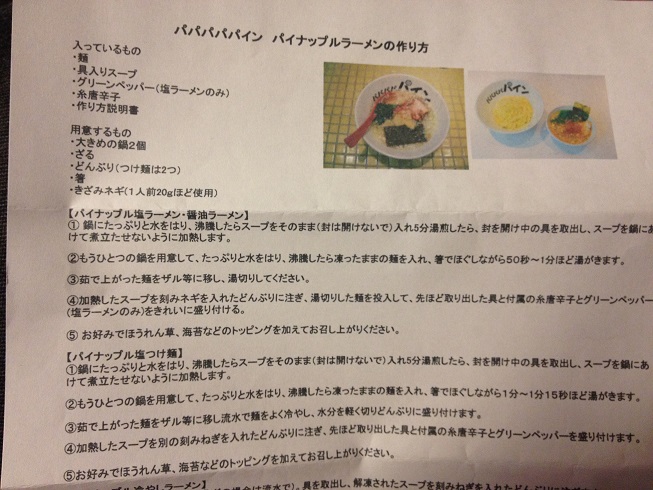 パパパパパイン パイナップルラーメンの作り方
入っているもの
・麺
・具入りスープ
・グリーンペッパー(塩ラーメンのみ)
・糸唐辛子
・作り方説明書
用意するもの
・大きめの鍋2個
・ざる
・どんぶり(つけ麺は2つ)
・箸
・きざみネギ(1人前20gほど使用)
パイン
パイン
【パイナップル塩ラーメン・醤油ラーメン】
① 鍋にたっぷりと水をはり、沸騰したらスープをそのまま(封は開けないで)入れ5分湯煎したら、封を開け中の具を取出し、スープを鍋にあ
けて煮立たせないように加熱します。
②もうひとつの鍋を用意して、たっぷりと水をはり、沸騰したら凍ったままの麺を入れ、箸でほぐしながら50秒～1分ほど湯がきます。
③茹で上がった麺をザル等に移し、湯切りしてください。
④加熱したスープを刻みネギを入れたどんぶりに注ぎ、湯切りした麺を投入して、先ほど取り出した具と付属の糸唐辛子とグリーンペッパー
(塩ラーメンのみ)をきれいに盛り付けする。
⑤ お好みでほうれん草、海苔などのトッピングを加えてお召し上がりください。
【パイナップル塩つけ麺】
①鍋にたっぷりと水をはり、沸騰したらスープをそのまま(封は開けないで)入れ5分湯煎したら、封を開け中の具を取出し、スープを鍋にあ
けて煮立たせないように加熱します。
②もうひとつの鍋を用意して、たっぷりと水をはり、沸騰したら凍ったままの麺を入れ、箸でほぐしながら1分～1分15秒ほど湯がきます。
③茹で上がった麺をザル等に移し流水で麺をよく冷やし、水分を軽く切りどんぶりに盛り付けます。
④加熱したスープを別の刻みねぎを入れたどんぶりに注ぎ、先ほど取り出した具と付属の糸唐辛子とグリーンペッパーを盛り付けます。
⑤お好みでほうれん草、海苔などのトッピングを加えてお召し上がりください。
プル冷やしラーメン】
の場合は流水で)。具を取出し、解凍されたスープを刻みねぎを入れたどんぶり